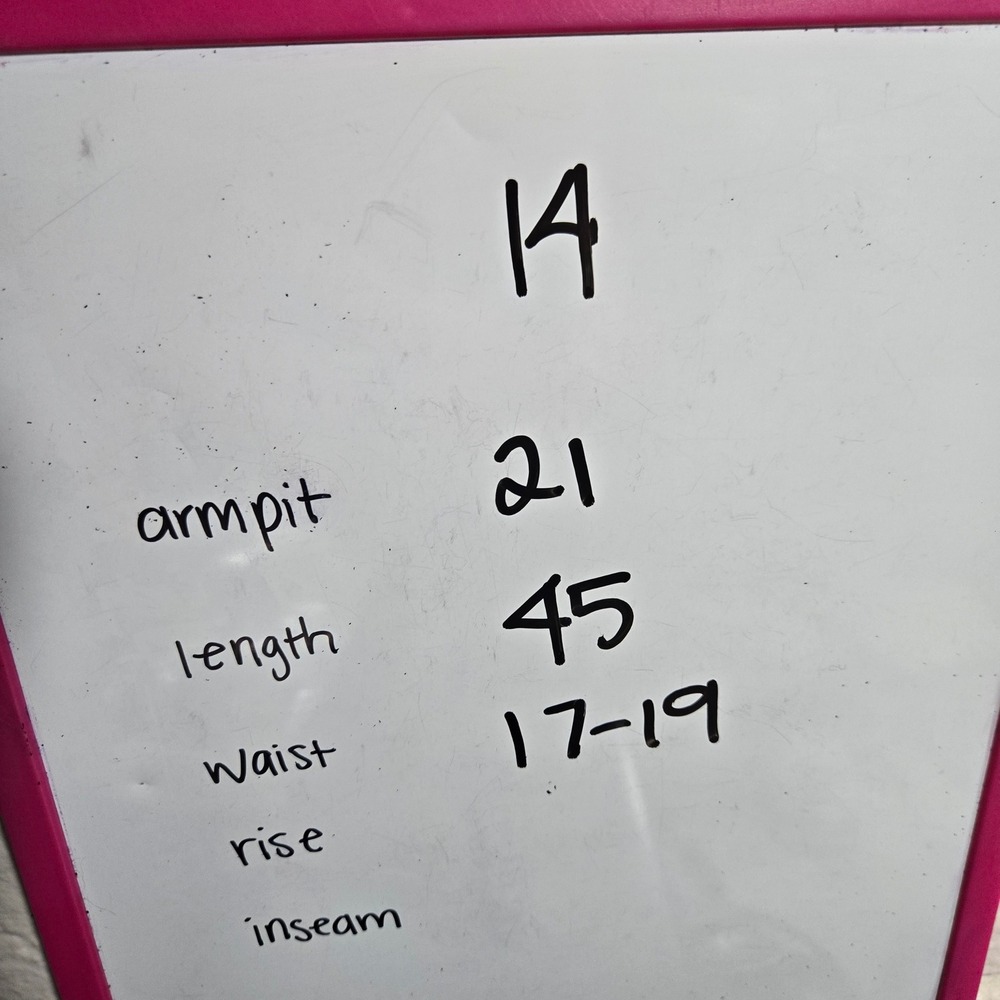 14
armpit 21
length 45
waist 17-19
rise
inseam